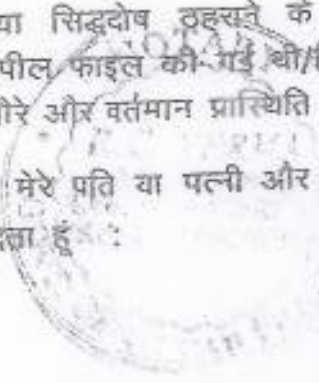 या सिद्धदोष ठहराने के
पील फाइल की गई थी/
रे और वर्तमान प्रास्थिति
मेरे पति या पत्नी और
हूं :